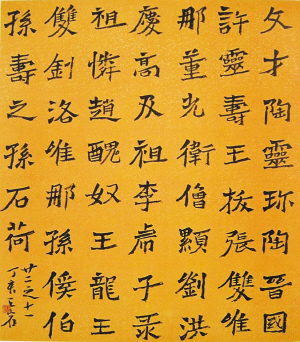 文才陶靈珎陶晉國
許靈壽王拔張雙維
那董光衛僧顯劉洪
慶高及祖李虎子彔
祖憐趙醜奴王龍王
雙釗洛唯那孫俟伯
孫壽之孫石荷
廿二之十一
丁亥